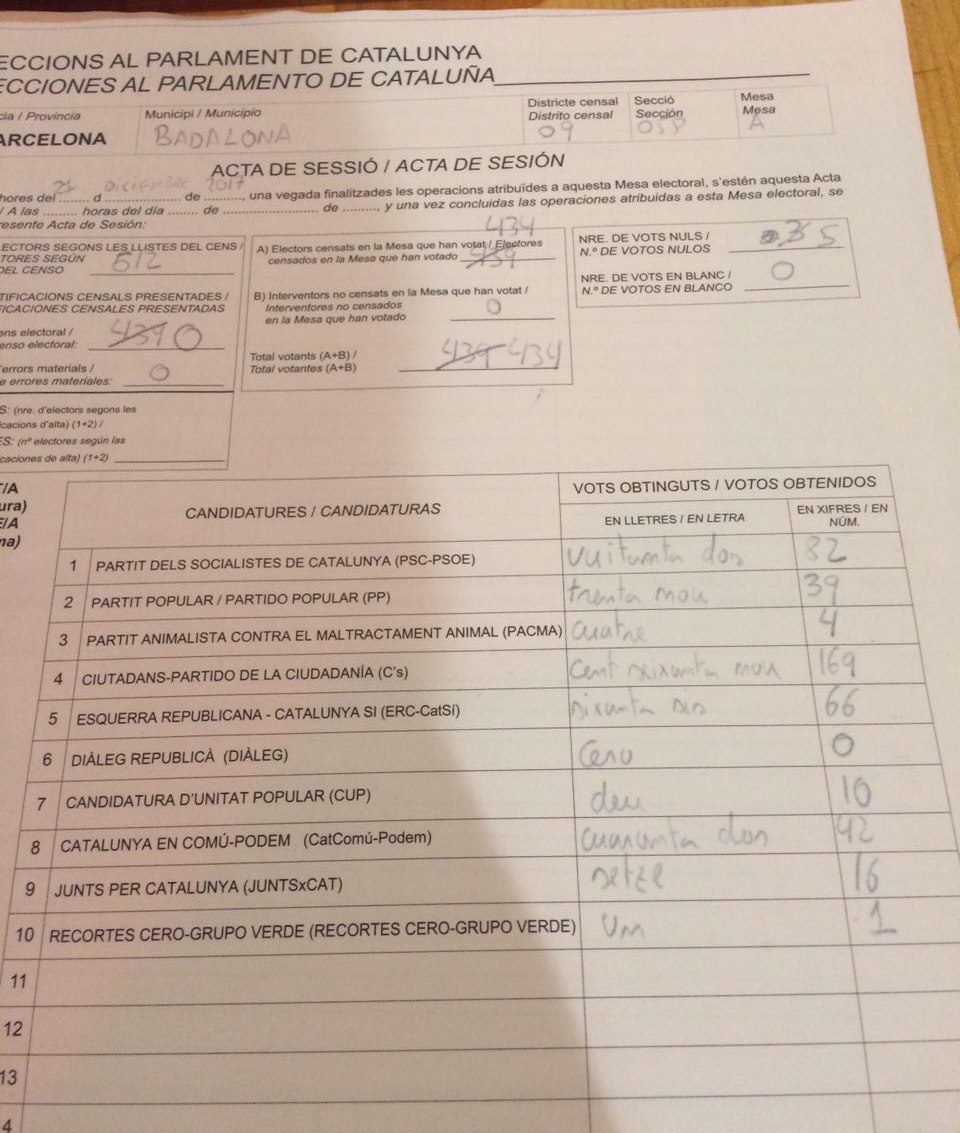 ECCIONS AL PARLAMENT DE CATALUNYA
ECCIONES AL PARLAMENTO DE CATALUÑA
cia / Provincia Municipi / Municipio Districte censal Secció Mesa
Distrito censal Sección Mesa
ARCELONA BADALONA 09 058 A
ACTA DE SESSIÓ / ACTA DE SESIÓN
hores del 21 d DICIEMBRE de 2017, una vegada finalitzades les operacions atribuïdes a aquesta Mesa electoral, s'estén aquesta Acta
/ A las ......... horas del día ........ de ........................ de ........., y una vez concluidas las operaciones atribuidas a esta Mesa electoral, se
resente Acta de Sesión:
ECTORS SEGONS LES LLISTES DEL CENS /
TORES SEGÚN
DEL CENSO 512
TIFICACIONS CENSALS PRESENTADES /
FICACIONES CENSALES PRESENTADAS
ens electoral /
enso electoral: 439 0
'errors materials /
e errores materiales: 0
S: (nre. d'electors segons les
icacions d'alta) (1+2) /
ES: (nº electores según las
caciones de alta) (1+2)
434
A) Electors censats en la Mesa que han votat / Electores
censados en la Mesa que han votado 439
B) Interventors no censats en la Mesa que han votat /
Interventores no censados
en la Mesa que han votado 0
Total votants (A+B) /
Total votantes (A+B) 439 434
NRE. DE VOTS NULS /
N.º DE VOTOS NULOS 5
NRE. DE VOTS EN BLANC /
N.º DE VOTOS EN BLANCO 0
T/A
ura)
E/A
ma)
CANDIDATURES / CANDIDATURAS VOTS OBTINGUTS / VOTOS OBTENIDOS
EN LLETRES / EN LETRA EN XIFRES / EN
NÚM.
1 PARTIT DELS SOCIALISTES DE CATALUNYA (PSC-PSOE) vuitanta dos 82
2 PARTIT POPULAR / PARTIDO POPULAR (PP) trenta nou 39
3 PARTIT ANIMALISTA CONTRA EL MALTRACTAMENT ANIMAL (PACMA) cuatre 4
4 CIUTADANS-PARTIDO DE LA CIUDADANÍA (C's) Cent seixanta nou 169
5 ESQUERRA REPUBLICANA - CATALUNYA SI (ERC-CatSí) sixanta sis 66
6 DIÀLEG REPUBLICÀ (DIÀLEG) Cero 0
7 CANDIDATURA D'UNITAT POPULAR (CUP) deu 10
8 CATALUNYA EN COMÚ-PODEM (CatComú-Podem) cuaranta dos 42
9 JUNTS PER CATALUNYA (JUNTSxCAT) setze 16
10 RECORTES CERO-GRUPO VERDE (RECORTES CERO-GRUPO VERDE) Un 1
11
12
13
4